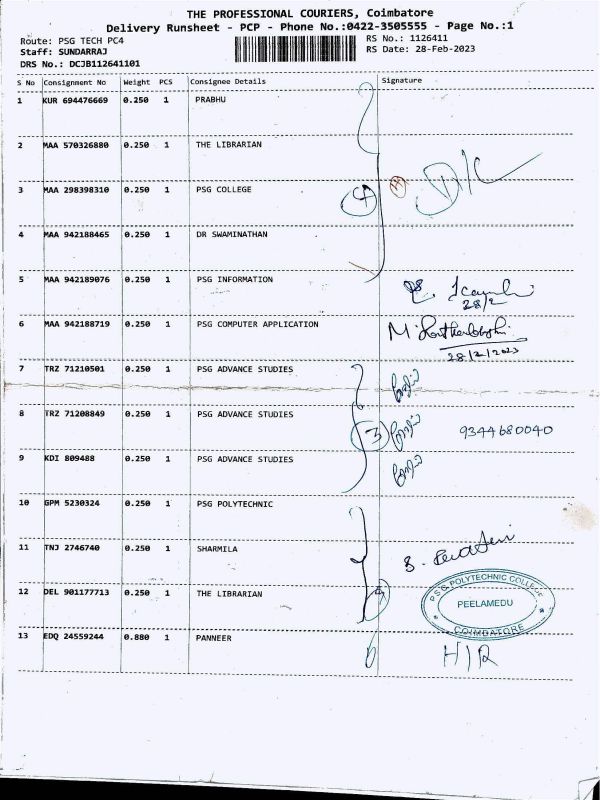 THE PROFESSIONAL COURIERS, Coimbatore
Delivery Runsheet - PCP - Phone No.:0422-3505555 - Page No.:1
Route: PSG TECH PC4 RS No.: 1126411
Staff: SUNDARRAJ RS Date: 28-Feb-2023
DRS No.: DCJB112641101
S No Consignment No Weight PCS Consignee Details Signature
1 KUR 694476669 0.250 1 PRABHU
2 MAA 570326880 0.250 1 THE LIBRARIAN
3 MAA 298398310 0.250 1 PSG COLLEGE 4
4 MAA 942188465 0.250 1 DR SWAMINATHAN
5 MAA 942189076 0.250 1 PSG INFORMATION
28/2
6 MAA 942188719 0.250 1 PSG COMPUTER APPLICATION
28/2/2023
7 TRZ 71210501 0.250 1 PSG ADVANCE STUDIES
8 TRZ 71208849 0.250 1 PSG ADVANCE STUDIES 3 9344680040
9 KDI 809488 0.250 1 PSG ADVANCE STUDIES
10 GPM 5230324 0.250 1 PSG POLYTECHNIC
11 TNJ 2746740 0.250 1 SHARMILA
12 DEL 901177713 0.250 1 THE LIBRARIAN
PSG POLYTECHNIC COLLEGE
PEELAMEDU
COIMBATORE
13 EDQ 24559244 0.880 1 PANNEER H/R